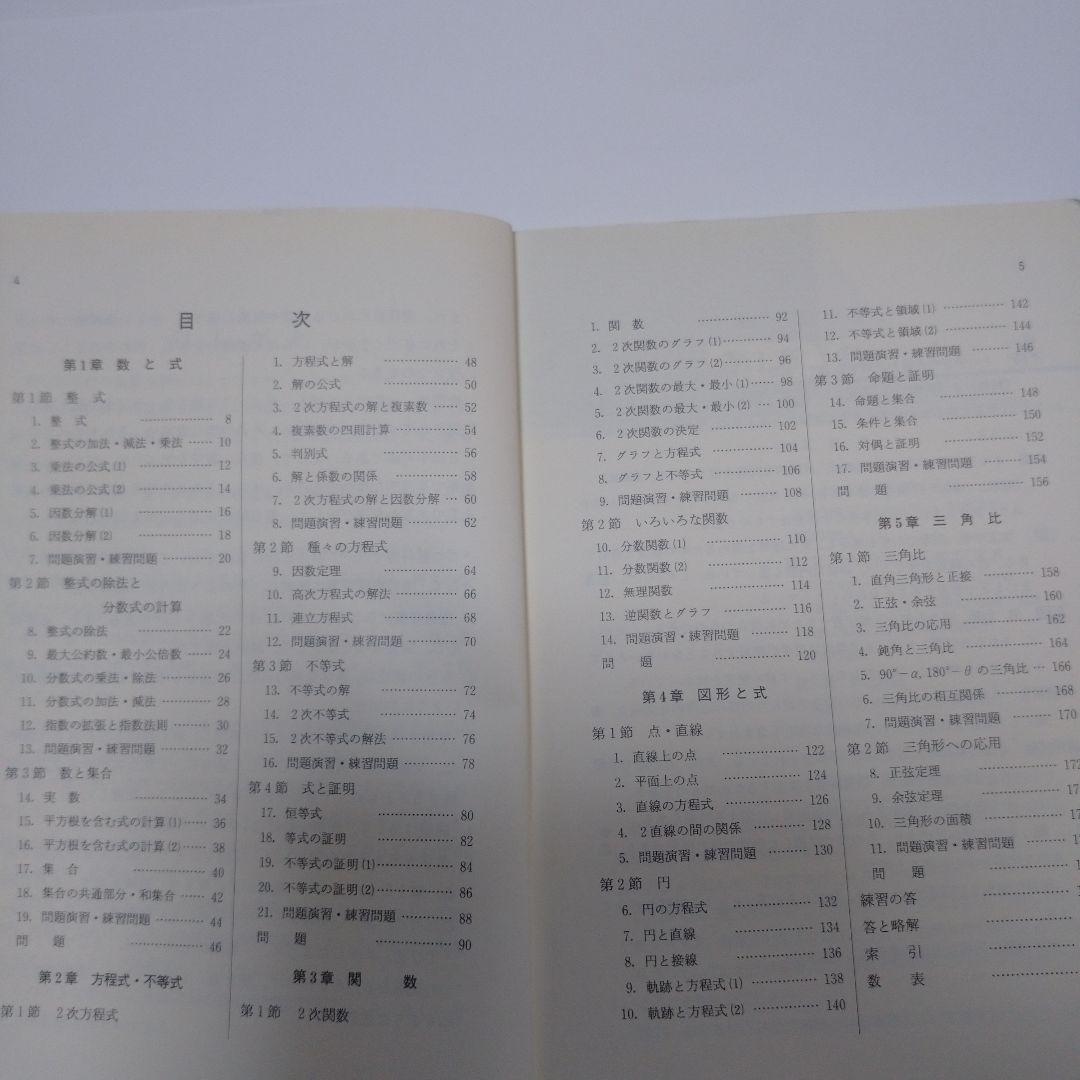 4
目 次
第1章 数 と 式
第1節 整 式
1. 整 式 ……………… 8
2. 整式の加法・減法・乗法 …… 10
3. 乗法の公式(1) ………… 12
4. 乗法の公式(2) ………… 14
5. 因数分解(1) ………… 16
6. 因数分解(2) ………… 18
7. 問題演習・練習問題 ……… 20
第2節 整式の除法と
分数式の計算
8. 整式の除法 ………… 22
9. 最大公約数・最小公倍数 …… 24
10. 分数式の乗法・除法 ……… 26
11. 分数式の加法・減法 ……… 28
12. 指数の拡張と指数法則 …… 30
13. 問題演習・練習問題 ……… 32
第3節 数と集合
14. 実 数 ………… 34
15. 平方根を含む式の計算(1) …… 36
16. 平方根を含む式の計算(2) …… 38
17. 集 合 ………… 40
18. 集合の共通部分・和集合 …… 42
19. 問題演習・練習問題 ……… 44
問 題 ………… 46
第2章 方程式・不等式
第1節 2次方程式
1. 方程式と解 ………… 48
2. 解の公式 ………… 50
3. 2次方程式の解と複素数 …… 52
4. 複素数の四則計算 ………… 54
5. 判別式 ………… 56
6. 解と係数の関係 ………… 58
7. 2次方程式の解と因数分解 … 60
8. 問題演習・練習問題 ……… 62
第2節 種々の方程式
9. 因数定理 ………… 64
10. 高次方程式の解法 ………… 66
11. 連立方程式 ………… 68
12. 問題演習・練習問題 ……… 70
第3節 不等式
13. 不等式の解 ………… 72
14. 2次不等式 ………… 74
15. 2次不等式の解法 ………… 76
16. 問題演習・練習問題 ……… 78
第4節 式と証明
17. 恒等式 ………… 80
18. 等式の証明 ………… 82
19. 不等式の証明(1) ………… 84
20. 不等式の証明(2) ………… 86
21. 問題演習・練習問題 ……… 88
問 題 ………… 90
第3章 関 数
第1節 2次関数
5
1. 関 数 ………… 92
2. 2次関数のグラフ(1) ……… 94
3. 2次関数のグラフ(2) ……… 96
4. 2次関数の最大・最小(1) …… 98
5. 2次関数の最大・最小(2) … 100
6. 2次関数の決定 ………… 102
7. グラフと方程式 ………… 104
8. グラフと不等式 ………… 106
9. 問題演習・練習問題 ……… 108
第2節 いろいろな関数
10. 分数関数(1) ………… 110
11. 分数関数(2) ………… 112
12. 無理関数 ………… 114
13. 逆関数とグラフ ………… 116
14. 問題演習・練習問題 ……… 118
問 題 ………… 120
第4章 図形と式
第1節 点・直線
1. 直線上の点 ………… 122
2. 平面上の点 ………… 124
3. 直線の方程式 ………… 126
4. 2直線の間の関係 ………… 128
5. 問題演習・練習問題 ……… 130
第2節 円
6. 円の方程式 ………… 132
7. 円と直線 ………… 134
8. 円と接線 ………… 136
9. 軌跡と方程式(1) ………… 138
10. 軌跡と方程式(2) ………… 140
11. 不等式と領域(1) ………… 142
12. 不等式と領域(2) ………… 144
13. 問題演習・練習問題 ……… 146
第3節 命題と証明
14. 命題と集合 ………… 148
15. 条件と集合 ………… 150
16. 対偶と証明 ………… 152
17. 問題演習・練習問題 ……… 154
問 題 ………… 156
第5章 三 角 比
第1節 三角比
1. 直角三角形と正接 ………… 158
2. 正弦・余弦 ………… 160
3. 三角比の応用 ………… 162
4. 鈍角と三角比 ………… 164
5. 90°−α, 180°−θ の三角比 … 166
6. 三角比の相互関係 ………… 168
7. 問題演習・練習問題 ……… 170
第2節 三角形への応用
8. 正弦定理 ………… 172
9. 余弦定理 …………
10. 三角形の面積 …………
11. 問題演習・練習問題 ………
問 題 …………
練習の答 …………
答と略解 …………
索 引 …………
数 表 …………